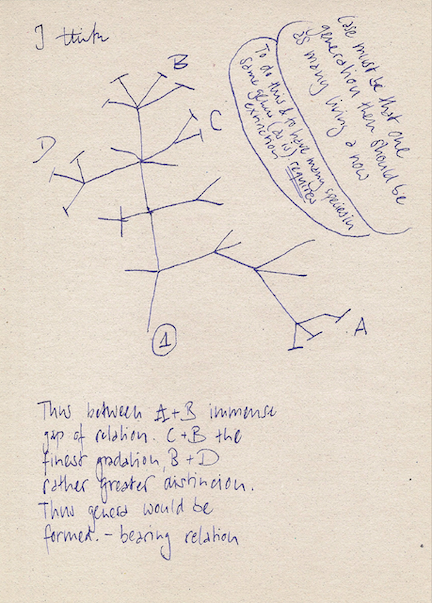 I think
B
Case must be that one
generation then should be
as many living as now
To do this & to have many species in
same genus (as is) requires
extinction
C
D
A
1
Thus between A+B immense
gap of relation. C+B the
finest gradation, B+D
rather greater distincion.
Thus genera would be
formed. – bearing relation